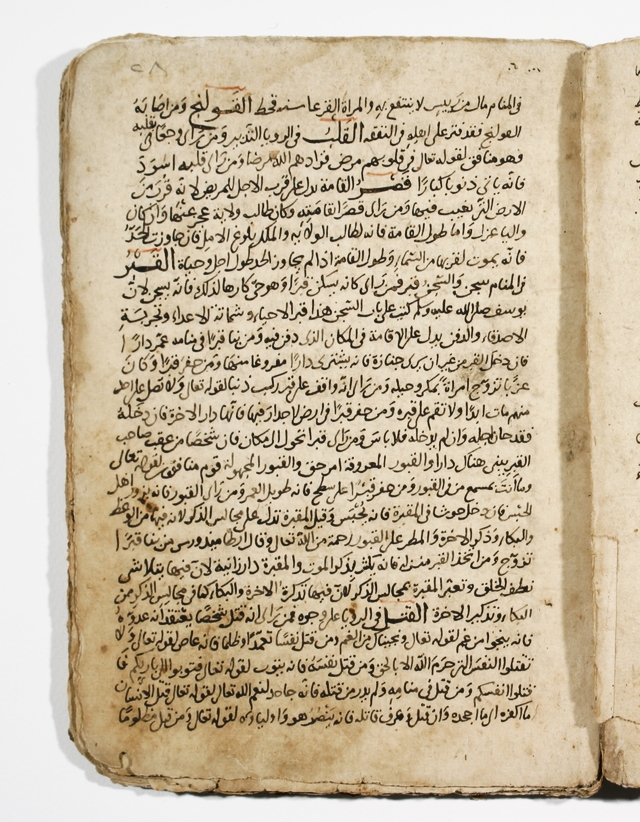 ٢٨
في المنام مال من رييس لا ينتفع به والمراة القرعا سنة قحط القولنج ومن اصابه
القولنج فقد قتر على اهله في النفقه القلب في الرويا التدبير ومن راى وجعا في قلبه
وهو منافق لقوله تعالى في قلوبهم مرض فزادهم الله مرضا ومن راى قلبه اسود
فانه ياتي ذنوبا كبارا قصر القامة يدل على قرب الاجل للمريض لانه قرب من
الارض التي يغيب فيها ومن راى قصر القامته وكان طالب ولاية عجز عنها وان كان
واليا عزل واما طول القامة فانه لطالب الولايه والملك بلوغ الامل فان جاوزت الحد
فانه يموت لقربها من السماء وطول القامة اذا لم يجاوز الحد طول اجل وحياة القبر
في المنام سجن والسجن قبر فمن راى كانه يسكن قبرا وهو حي كارها لذلك فانه يسجن لان
يوسف صلى الله عليه وسلم كتب على باب السجن هذا قبر الاحياء وشماتة الاعداء وتجربة
الاصدقاء والدفن يدل على الاقامة في المكان الذى دفن فيه ومن بنا قبرا في منامه عمر دارا
فان دخل القبر من غير ان يرى جنازة فانه يشترى دارا مفروغا منها ومن حفر قبرا وكان
عزبا تزوج امراة بمكر وحيله ومن راى انه واقف على قبر ركب ذنبا لقوله تعالى ولا تصل على احد
منهم مات ابدا ولا تقم على قبره ومن حفر قبرا في ارض احدار فيها فانها دار الاخرة فان دخله
فقد حان اجله وان لم يدخله فلا باس ومن راى قبرا تحول الى مكان فان شخصا من عقب صاحب
القبر يبني هناك دارا والقبور المعروفة امر حق والقبور المجهولة قوم منافقين لقوله تعالى
وما انت بمسمع من في القبور ومن حفر قبرا على سطح فانه طويل العمر ومن راى القبور فانه يزور اهل
الحبس فان دخل حوشا في المقبرة فانه يحبس وقيل المقبرة تدل على مجالس الذكر لانه فيها من الوعظ
والبكاء وذكر الاخرة والمطر على القبور رحمة من الله تعالى وقال ارطاميدورس من بنا قبرا
تزوج ومن اتخذ القبر منزله فانه يكثر بذكر الموت والمقبرة دار زانية لان فيها يتلاشى
نطف الخلق وتعبر المقبرة بمجالس الذكر لان فيها تذكرة الاخرة والبكاء كما في مجالس الذكر من
البكاء وتذكير الاخرة القتل في الرويا على وجوه فمن راى انه قتل شخصا يعتقد انه عدوه
فانه ينجوا من غم لقوله تعالى ونجيناك من الغم ومن قتل نفسا تعمدا وظلما فانه عاص لقوله تعالى ولا
تقتلوا النفس التي حرم الله الا بالحق ومن قتل نفسه فانه يتوب لقوله تعالى فتوبوا الى باريكم فا
قتلوا انفسكم ومن قتل في منامه ولم يدر من قتله فانه جاحد لنعم الله تعالى لقوله تعالى قتل الانسان
ما اكفره اى ما اجحده وان قتل وعرف قاتله فانه ينتصر هو واولياوه لقوله تعالى ومن قتل مظلوما